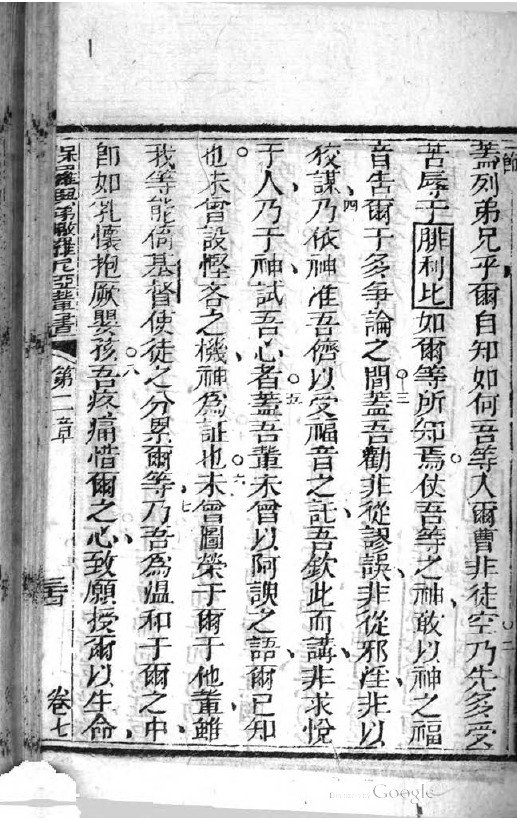 蓋列弟兄乎爾自知如何吾等入爾曹非徒空乃先多受
苦辱于腓利比如爾等所知焉仗吾等之神敢以神之福
音告爾于多爭論之間蓋吾勸非從謬誤非從邪淫非以
狡謀乃依神准吾儕以受福音之託吾欽此而講非求悅
于人乃于神試吾心者蓋吾輩未曾以阿諛之語爾已知
也未曾設慳吝之機神為証也未曾圖榮于爾于他輩雖
我等能倚基督使徒之分累爾等乃吾為溫和于爾之中
即如乳懷抱厥嬰孩吾疼痛惜爾之心致願授爾以生命
第二章
卷七
Google